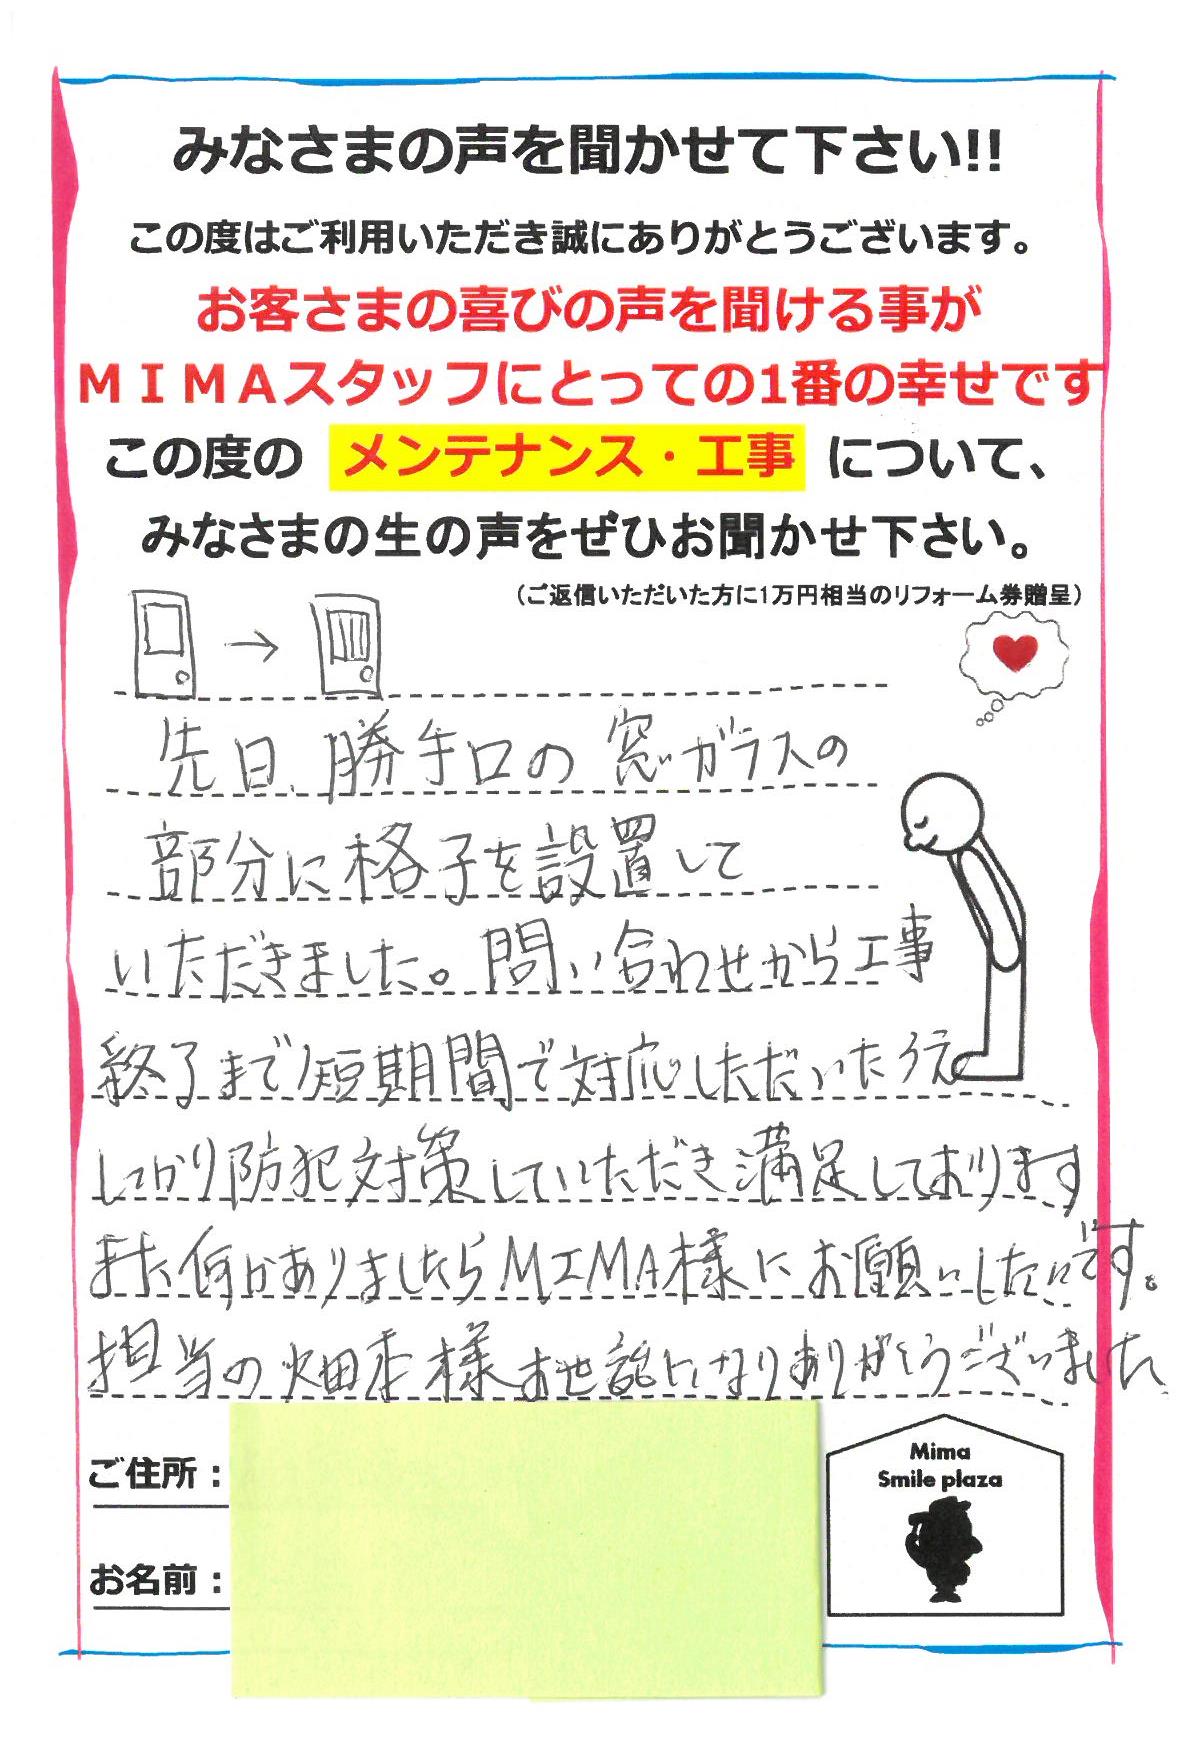 みなさまの声を聞かせて下さい!!
この度はご利用いただき誠にありがとうございます。
お客さまの喜びの声を聞ける事が
ＭＩＭＡスタッフにとっての1番の幸せです
この度の メンテナンス・工事 について、
みなさまの生の声をぜひお聞かせ下さい。
（ご返信いただいた方に1万円相当のリフォーム券贈呈）
先日、勝手口の窓ガラスの
部分に格子を設置して
いただきました。問い合わせから工事
終了まで短期間で対応しただいたうえ
しっかり防犯対策していただき満足しております
また何かありましたらMIMA様にお願いしたいです。
担当の畑本様お世話になりありがとうございました
ご住所：
お名前：
Mima
Smile plaza